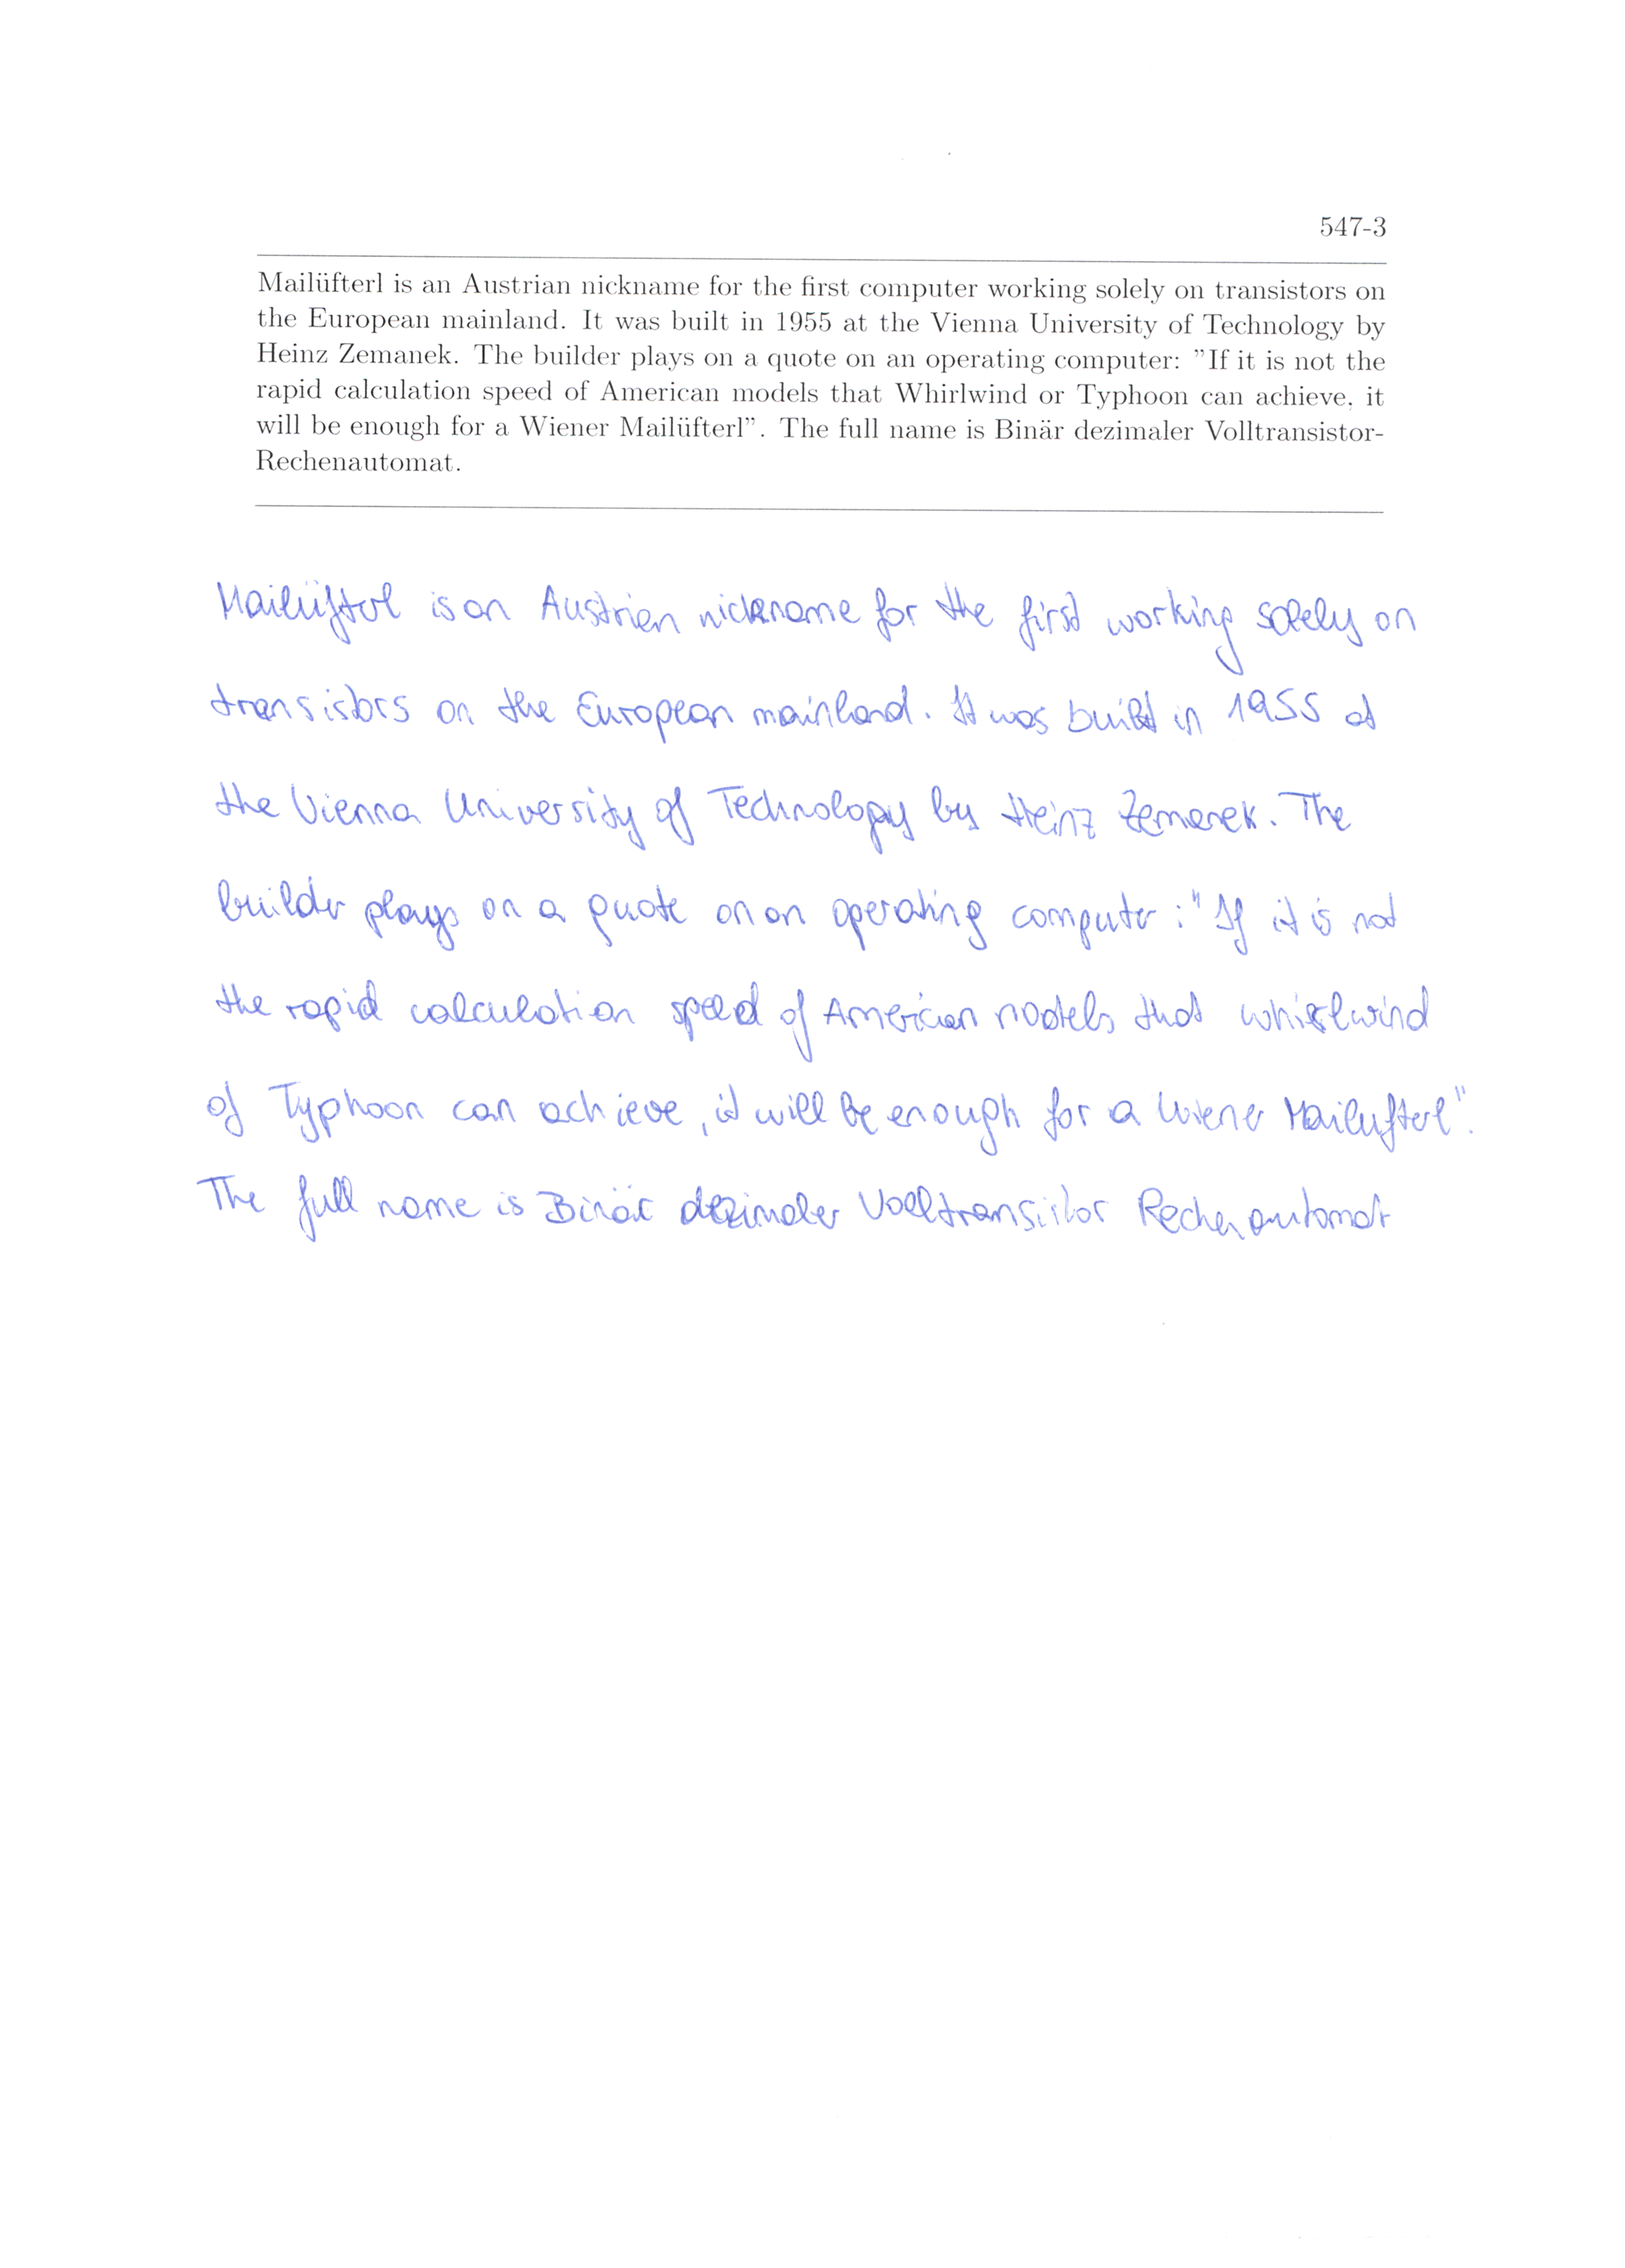 547-3
Mailüfterl is an Austrian nickname for the first computer working solely on transistors on
the European mainland. It was built in 1955 at the Vienna University of Technology by
Heinz Zemanek. The builder plays on a quote on an operating computer: "If it is not the
rapid calculation speed of American models that Whirlwind or Typhoon can achieve, it
will be enough for a Wiener Mailüfterl". The full name is Binär dezimaler Volltransistor-
Rechenautomat.
Mailüfterl is an Austrian nickname for the first working solely on
transistors on the European mainland. It was built in 1955 at
the Vienna University of Technology by Heinz Zemanek. The
builder plays on a quote on an operating computer: "If it is not
the rapid calculation speed of American models that whirlwind
of Typhoon can achieve, it will be enough for a Wiener Mailufterl".
The full name is Binär dezimaler Volltransistor Rechenautomat